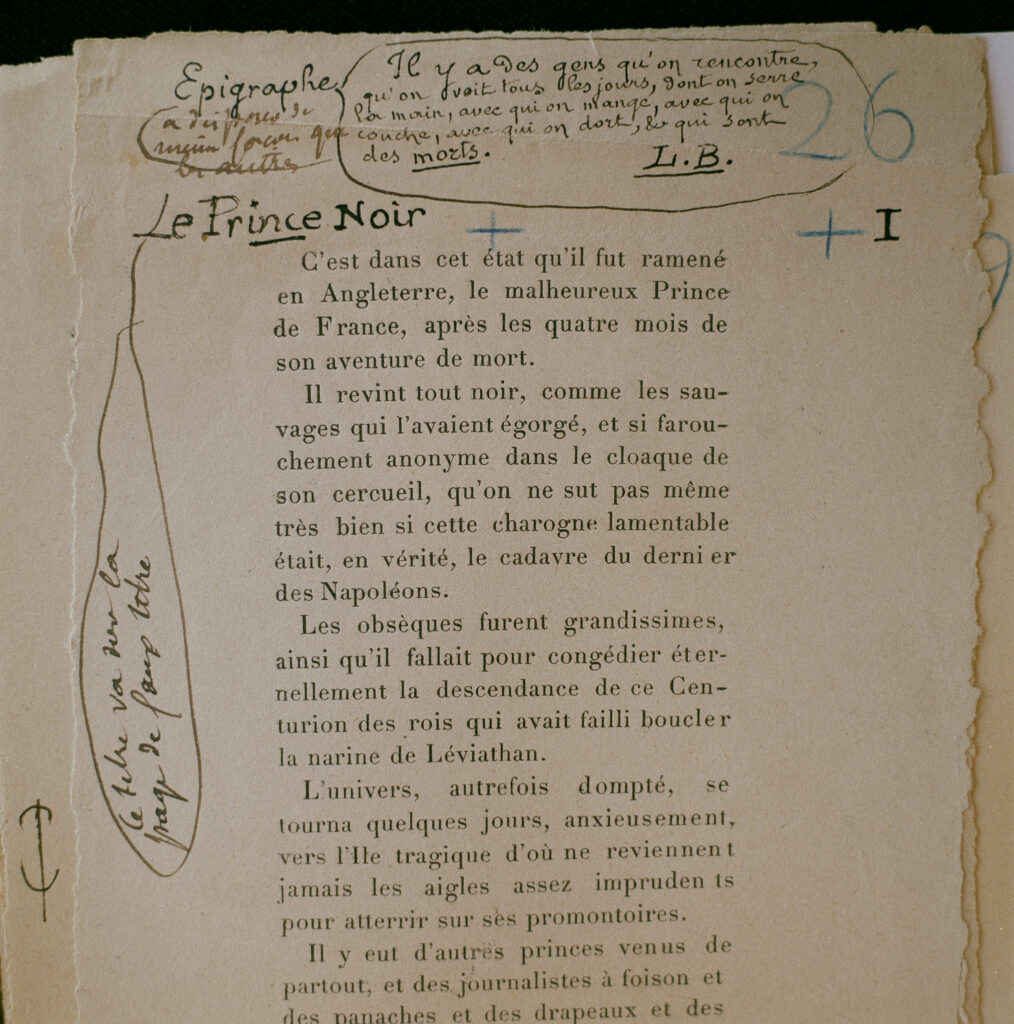 Epigraphe
Il y a des gens qu'on rencontre,
qu'on voit tous les jours, dont on serre
la main, avec qui on mange, avec qui on
couche, avec qui on dort, & qui sont
des morts.
L.B.
26
à disposer de
même façon que
les autres
Le Prince Noir
+ + I
C'est dans cet état qu'il fut ramené
en Angleterre, le malheureux Prince
de France, après les quatre mois de
son aventure de mort.
Il revint tout noir, comme les sau-
vages qui l'avaient égorgé, et si farou-
chement anonyme dans le cloaque de
son cercueil, qu'on ne sut pas même
très bien si cette charogne lamentable
était, en vérité, le cadavre du derni er
des Napoléons.
Les obsèques furent grandissimes,
ainsi qu'il fallait pour congédier éter-
nellement la descendance de ce Cen-
turion des rois qui avait failli boucler
la narine de Léviathan.
L'univers, autrefois dompté, se
tourna quelques jours, anxieusement,
vers l'Ile tragique d'où ne reviennent
jamais les aigles assez impruden ts
pour atterrir sur ses promontoires.
Il y eut d'autres princes venus de
partout, et des journalistes à foison et
des panaches et des drapeaux et des
le titre va sur la
page de faux titre
9